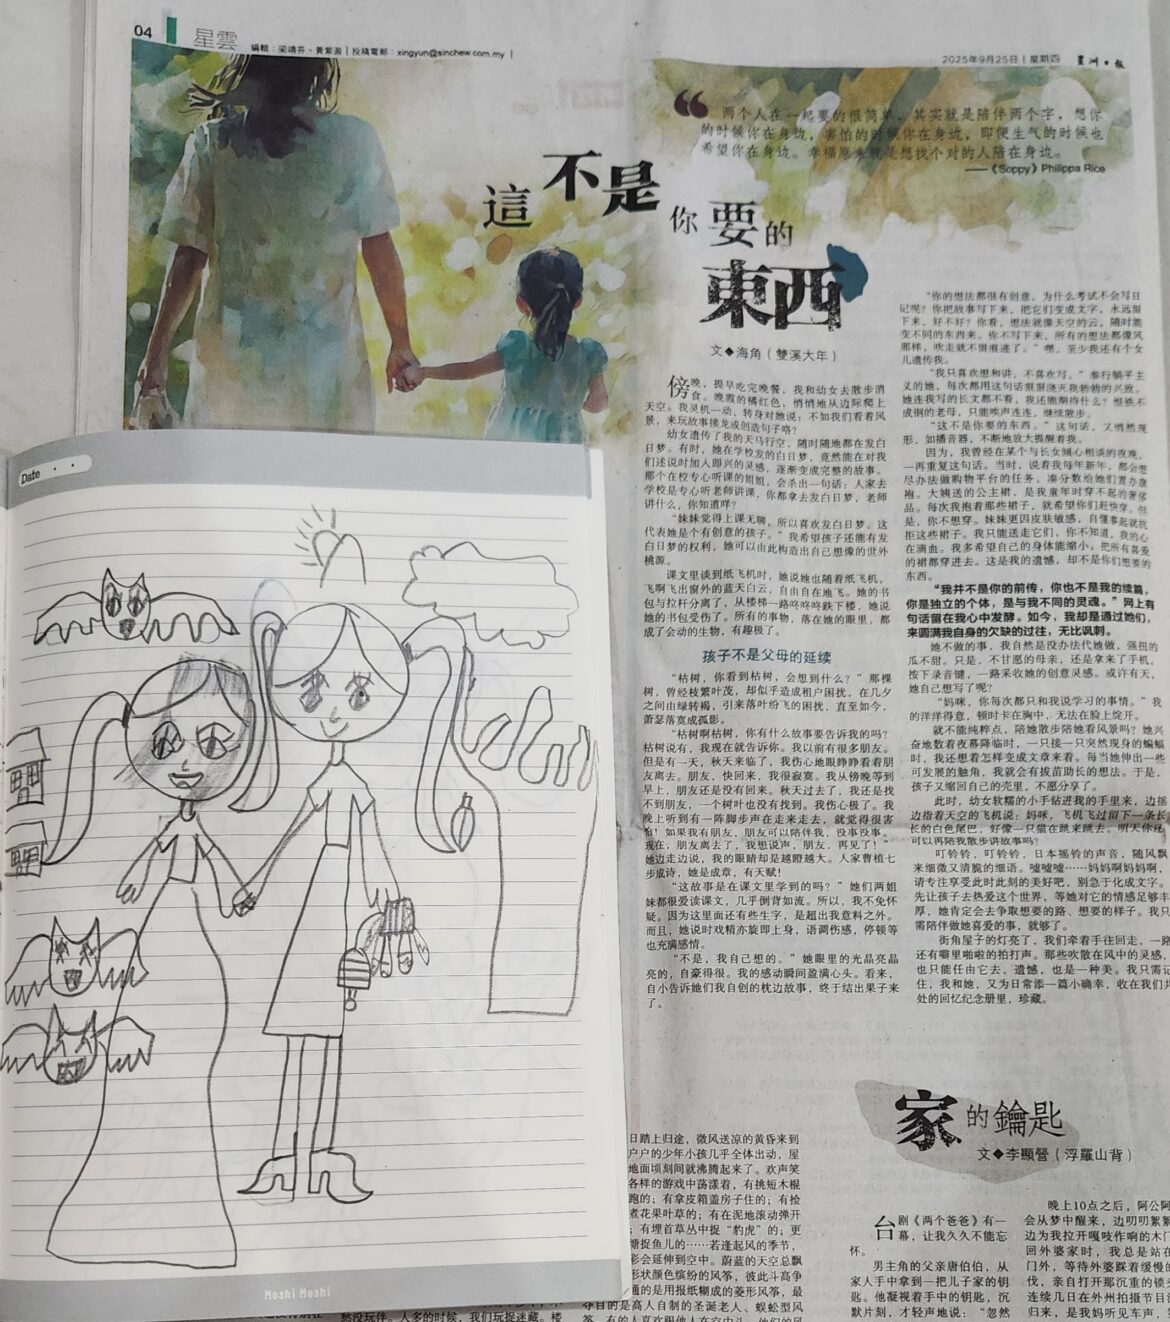 04
星雲
編輯：梁靖芬、黃紫盈 | 投稿電郵：xingyun@sinchew.com.my |
2025年9月25日 | 星期四
星洲日報
两个人在一起要的很简单，其实就是陪伴两个字，想你
的时候你在身边，害怕的时候你在身边，即便生气的时候也
希望你在身边。幸福原来就是想找个对的人陪在身边。
——《Soppy》Philippa Rice
這不是你要的東西
文◆海角（雙溪大年）
傍晚，提早吃完晚餐，我和幼女去散步消
食。晚霞的橘红色，悄悄地从边际爬上
天空。我灵机一动，转身对她说：不如我们看着风
景，来玩故事接龙或创造句子咯？
幼女遗传了我的天马行空，随时随地都在发白
日梦。有时，她在学校发的白日梦，竟然能在对我
们述说时加入即兴的灵感，逐渐变成完整的故事。
那个在校专心听课的姐姐，会杀出一句话：人家去
学校是专心听老师讲课，你都拿去发白日梦，老师
讲什么，你知道咩？
“妹妹觉得上课无聊，所以喜欢发白日梦。这
代表她是个有创意的孩子。”我希望孩子还能有发
白日梦的权利，她可以由此构造出自己想像的世外
桃源。
课文里谈到纸飞机时，她说她也随着纸飞机，
飞啊飞出窗外的蓝天白云，自由自在地飞。她的书
包与拉杆分离了，从楼梯一路咚咚咚跌下楼，她说
她的书包受伤了。所有的事物，落在她的眼里，都
成了会动的生物，有趣极了。
孩子不是父母的延续
“枯树，你看到枯树，会想到什么？”那棵
树，曾经枝繁叶茂，却似乎造成租户困扰，在几夕
之间由绿转褐，引来落叶纷飞的困扰，直至如今，
萧瑟落寞成孤影。
“枯树啊枯树，你有什么故事要告诉我的吗？
枯树说有，我现在就告诉你。我以前有很多朋友。
但是有一天，秋天来临了，我伤心地眼睁睁看着朋
友离去。朋友，快回来，我很寂寞。我从傍晚等到
早上，朋友还是没有回来。秋天过去了，我还是找
不到朋友，一个树叶也没有找到。我伤心极了。我
晚上听到有一阵脚步声在走来走去，就觉得很害
怕！如果我有朋友，朋友可以陪伴我，没事没事。
我在，朋友离去了，我想说声，朋友，再见了！”
她边走边说，我的眼睛却是越瞪越大。人家曹植七
步成诗，她是成章，有天赋！
“这故事是在课文里学到的吗？”她们两姐
妹都很爱读课文，几乎倒背如流。所以，我不免怀
疑。因为这里面还有些生字，是超出我意料之外。
而且，她说时戏精亦旋即上身，语调伤感，停顿等
也充满感情。
“不是，我自己想的。”她眼里的光晶亮晶
亮的，自豪得很。我的感动瞬间盈满心头。看来，
自小告诉她们我自创的枕边故事，终于结出果子来
了。
“你的想法都很有创意，为什么考试不会写日
记呢？你把故事写下来，把它们变成文字，永远留
下来，好不好？你看，想法就像天空的云，随时能
变不同的东西来。你不写下来，所有的想法都像风
那样，吹走就不留痕迹了。”嘿，至少我还有个女
儿遗传我。
“我只喜欢想和讲，不喜欢写。”奉行躺平主
义的她，每次都用这句话狠狠浇灭我勃勃的兴致。
她连我写的长文都不看，我还能期待什么？恨铁不
成钢的老母，只能唉声连连，继续散步。
“这不是你要的东西。”这句话，又悄然现
形，如播音器，不断地放大提醒着我。
因为，我曾经在某个与长女倾心相谈的夜晚，
一再重复这句话。当时，说着我每年新年，都会想
尽办法做购物平台的任务，凑分数给她们置办旗
袍。大姨送的公主裙，是我童年时穿不起的奢侈
品。每次我抱着那些裙子，就希望你们赶快穿。但
是，你不想穿。妹妹更因皮肤敏感，自懂事起就抗
拒这些裙子。我只能送走它们，你不知道，我的心
在滴血。我多希望自己的身体能缩小，把所有喜爱
的裙都穿进去。这是我的遗憾，却不是你们想要的
东西。
“我并不是你的前传，你也不是我的续篇，
你是独立的个体，是与我不同的灵魂。”网上有
句话留在我心中发酵。如今，我却是通过她们，
来圆满我自身的欠缺的过往，无比讽刺。
她不做的事，我自然是没办法代她做，强扭的
瓜不甜。只是，不甘愿的母亲，还是拿来了手机，
按下录音键，一路采收她的创意灵感。或许有天，
她自己想写了呢？
“妈咪，你每次都只和我说学习的事情。”我
的洋洋得意，顿时卡在胸中，无法在脸上绽开。
就不能纯粹点，陪她散步陪她看风景吗？她兴
奋地数着夜幕降临时，一只接一只突然现身的蝙蝠
时，我还想着怎样变成文章来着。每当她伸出一些
可发展的触角，我就会有拔苗助长的想法。于是，
孩子又缩回自己的壳里，不愿分享了。
此时，幼女软糯的小手钻进我的手里来，边摇
边指着天空的飞机说：妈咪，飞机飞过留下一条长
长的白色尾巴，好像一只猫在跳来跳去。明天你还
可以再陪我散步讲故事吗？
叮铃铃，叮铃铃，日本摇铃的声音，随风飘
来细微又清脆的细语。嘘嘘嘘……妈妈啊妈妈啊，
请专注享受此时此刻的美好吧，别急于化成文字。
先让孩子去热爱这个世界，等她对它的情感足够丰
厚，她肯定会去争取想要的路、想要的样子。我只
需陪伴做她喜爱的事，就够了。
街角屋子的灯亮了，我们牵着手往回走，一路
还有噼里啪啦的拍打声。那些吹散在风中的灵感，
也只能任由它去，遗憾，也是一种美。我只需记
住，我和她，又为日常添一篇小确幸，收在我们共
处的回忆纪念册里，珍藏。
Date
Moshi Moshi
家的鑰匙
文◆李顯謦（浮羅山背）
日踏上归途，微风送凉的黄昏来到
户户的少年小孩几乎全体出动，屋
地面顷刻间就沸腾起来了。欢声笑
各样的游戏中荡漾着，有挑短木棍
跑的；有拿皮箱盖房子住的；有捡
煮花果叶草的；有在泥地滚动弹开
；有埋首草丛中捉“豹虎”的；更
塘捉鱼儿的……若逢起风的季节，
彩会延伸到空中。蔚蓝的天空总飘
形状颜色缤纷的风筝，彼此斗高争
通的是用报纸糊成的菱形风筝，最
夺目的是高人自制的圣诞老人、蜈蚣型风
然没玩伴。人多的时候，我们玩捉迷藏。楼
台剧《两个爸爸》有一
幕，让我久久不能忘
怀。
男主角的父亲唐伯伯，从
家人手中拿到一把儿子家的钥
匙。他凝视着手中的钥匙，沉
默片刻，才轻声地说：“忽然
晚上10点之后，阿公阿
会从梦中醒来，边叨叨絮絮
边为我拉开嘎吱作响的木门
回外婆家时，我总是站在
门外，等待外婆踩着缓慢的
伐，亲自打开那沉重的锁头
连续几日在外州拍摄节目
归来，是我妈听见车声，